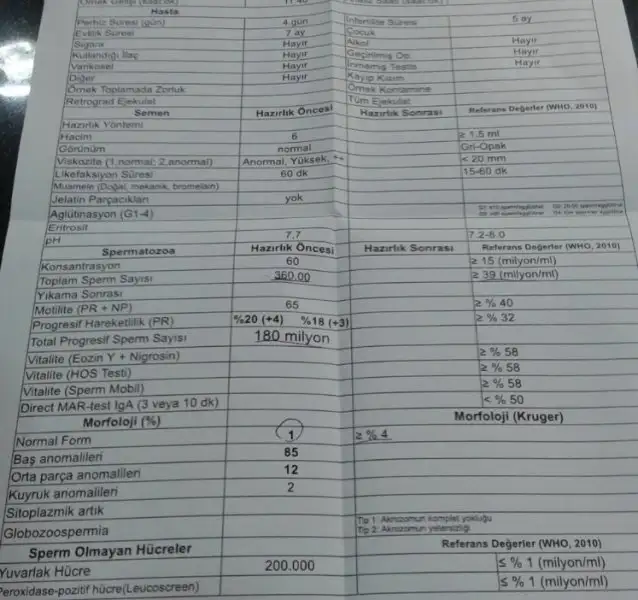 Hasta
Perhiz Süresi (gün) 4 gün İnfertilite Süresi 5 ay
Evlilik Süresi 7 ay Çocuk
Sigara Hayır Alkol Hayır
Kullandığı İlaç Hayır Geçirilmiş Op. Hayır
Varikosel Hayır İnmemiş Testis Hayır
Diğer Hayır Kayıp Kısım
Örnek Toplamada Zorluk Örnek Kontamine
Retrograd Ejekulat Tüm Ejekulat
Semen Hazırlık Öncesi Hazırlık Sonrası Referans Değerler (WHO, 2010)
Hazırlık Yöntemi
Hacim 6 ≥ 1.5 ml
Görünüm normal Gri-Opak
Viskozite (1.normal; 2.anormal) Anormal, Yüksek, ++ < 20 mm
Likefaksiyon Süresi 60 dk 15-60 dk
Muamele (Doğal, mekanik, bromelain)
Jelatin Parçacıkları yok
Aglütinasyon (G1-4)
Eritrosit
pH 7.7 7.2-8.0
Spermatozoa Hazırlık Öncesi Hazırlık Sonrası Referans Değerler (WHO, 2010)
Konsantrasyon 60 ≥ 15 (milyon/ml)
Toplam Sperm Sayısı 360.00 ≥ 39 (milyon/ml)
Yıkama Sonrası
Motilite (PR + NP) 65 ≥ % 40
Progresif Hareketlilik (PR) %20 (+4) %18 (+3) ≥ % 32
Total Progresif Sperm Sayısı 180 milyon
Vitalite (Eozin Y + Nigrosin) ≥ % 58
Vitalite (HOS Testi) ≥ % 58
Vitalite (Sperm Mobil) ≥ % 58
Direct MAR-test IgA (3 veya 10 dk) < % 50
Morfoloji (%) Morfoloji (Kruger)
Normal Form 1 ≥ % 4
Baş anomalileri 85
Orta parça anomalileri 12
Kuyruk anomalileri 2
Sitoplazmik artık
Globozoospermia Tip 1: Akrozomun komplet yokluğu
Tip 2: Akrozomun yetersizliği
Sperm Olmayan Hücreler Referans Değerler (WHO, 2010)
Yuvarlak Hücre 200.000 ≤ % 1 (milyon/ml)
Peroxidase-pozitif hücre(Leucoscreen) ≤ % 1 (milyon/ml)